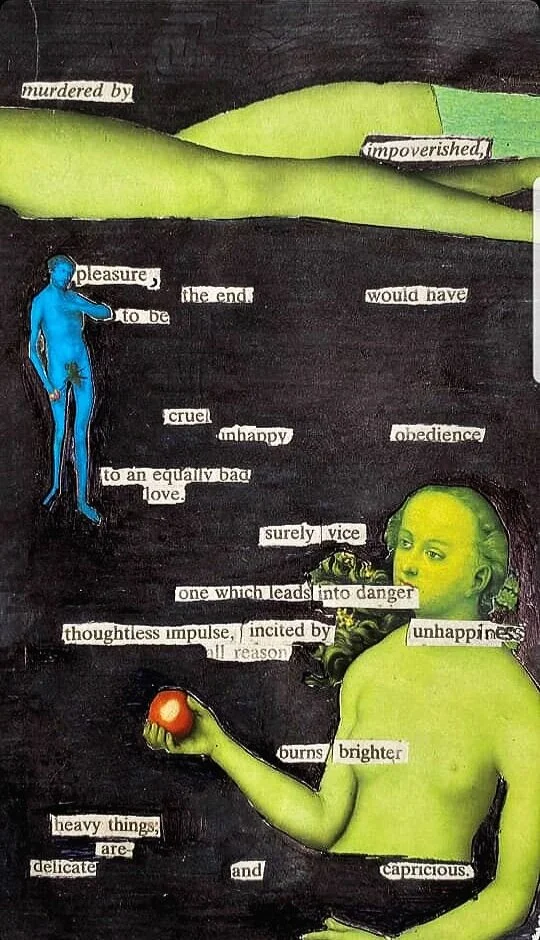 murdered by
impoverished,
pleasure,
the end. would have
to be
cruel
unhappy obedience
to an equally bad
love.
surely vice
one which leads into danger
thoughtless impulse, incited by unhappiness
all reason
burns brighter
heavy things;
are
delicate and capricious.